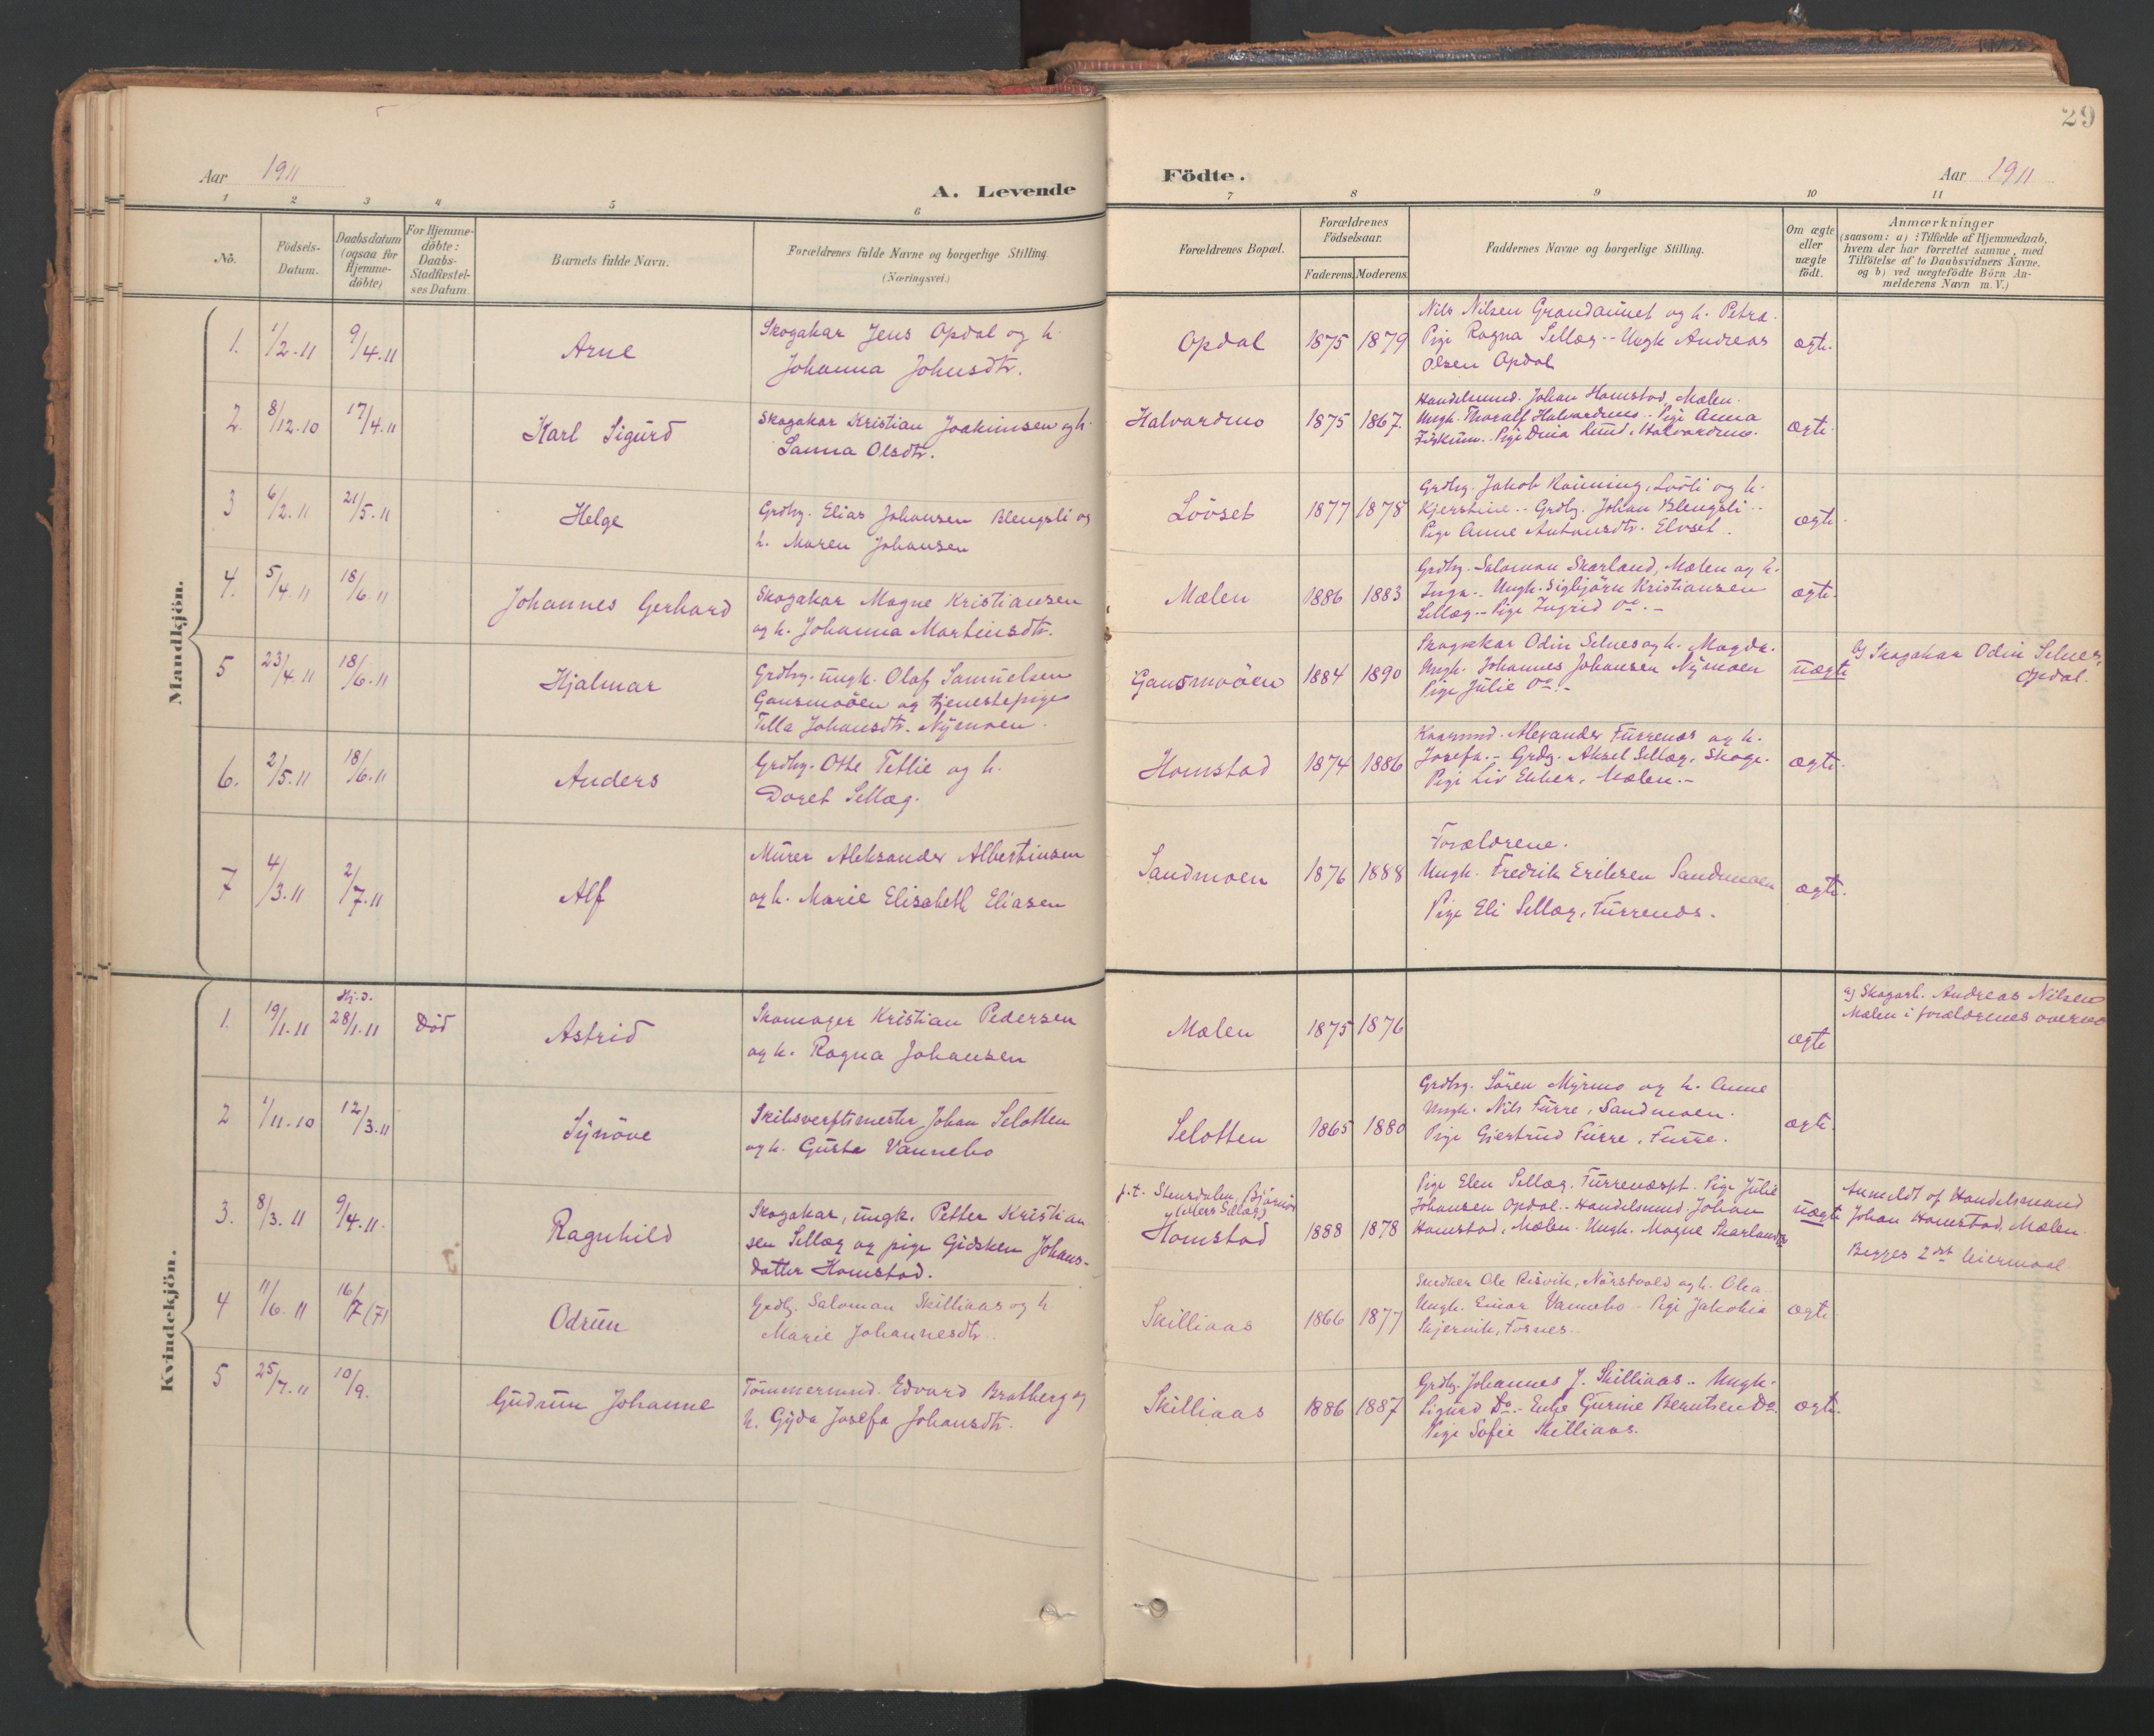 29
Aar 1911
A. Levende
Födte.
Aar 1911
1 2 3 4 5 6 7 8 9 10 11
No.
Födsels-
Datum.
Daabsdatum
(ogsaa for
Hjemme-
döbte)
For Hjemme-
döbte:
Daabs-
Stadfæstel-
ses Datum.
Barnets fulde Navn.
Forældrenes fulde Navne og borgerlige Stilling
(Næringsvei.)
Forældrenes Bopæl.
Forældrenes
Födselsaar.
Faderens. Moderens.
Faddernes Navne og borgerlige Stilling.
Om ægte
eller
uægte
födt.
Anmærkninger
(saasom: a) i Tilfælde af Hjemmedaab,
hvem der har forrettet samme, med
Tilföielse af to Daabsvidners Navne.
og b) ved uægtefödte Börn An-
melderens Navn m. V.)
Mandkjön.
1. 1/2.11 9/4.11 Arne
Skogakar Jens Opdal og h.
Johanna Johnsdtr.
Opdal 1875 1879
Nils Nilsen Grandaunet og h. Petra.
Pige Ragna Sellæg.- Ungk Andreas
Olsen Opdal
ægte.
2. 8/12.10 17/4.11 Karl Sigurd
Skogakar Kristian Joakimsen og h.
Sanna Olsdtr.
Halvardmo 1875 1867.
Handelsmd. Johan Homstad, Mælen.
Ungk. Thoralf Halvardmo.- Pige Anna
Fiskum.- Pige Dina Lund, Halvardmo.
ægte.
3 6/2.11 21/5.11 Helge
Grdbg. Elias Johansen Blengsli og
h. Maren Johansen
Lövset 1877 1878
Grdbg. Jakob Rönning, Lövli og h.
Kjerstine.- Grdbg. Johan Blengsli.-
Pige Anne Antonsdtr. Elvset.
ægte.
4. 5/4.11 18/6.11 Johannes Gerhard
Skogakar Magne Kristiansen
og h. Johanna Martinsdtr.
Mælen 1886 1883
Grdbg. Salomon Skarland, Mælen og h.
Inga.- Ungk. Sigbjörn Kristiansen
Sellæg.- Pige Ingrid Do.-
ægte.
5 23/4.11 18/6.11 Hjalmar
Grdbg. ungk. Olaf Samuelsen
Gansmoöen og tjenestepige
Tilla Johansdtr. Nymoen.
Gansmoöen 1884 1890
Skogakar Odin Selnes og h. Magda.
Ungk. Johannes Johansen Nymoen
Pige Julie Do.-
uægte
b) Skogakar Odin Selnes,
Opdal.
6. 2/5.11 18/6.11 Anders
Grdbg. Otte Tetlie og h.
Doret Sellæg.
Homstad 1874 1886
Kaarmd. Alexander Furrenes og h.
Josefa.- Grdbg. Aksel Sellæg, Skage.
Pige Liv Ekker, Mælen.-
ægte.
7 4/3.11 2/7.11 Alf
Murer Aleksander Albertinsen
og h. Marie Elisabeth Eliasen
Sandmoen 1876 1888
Forældrene.
Ungk. Fredrik Eriksen Sandmoen
Pige Eli Sellæg, Furrenes.
ægte.
Kvindekjön.
1. 19/1.11 Hj.d. 28/1.11 Död Astrid
Skomager Kristian Pedersen
og h. Ragna Johansen
Mælen 1875 1876
ægte
a) Skogarb. Andreas Nilsen
Mælen i forældrenes overv.
2 1/11.10 12/3.11 Synöve
Skibsverftsmester Johan Selotten
og h. Gusta Vannebo
Selotten 1865 1880
Grdbg. Sören Myrmo og h. Anne
Ungk. Nils Furre, Sandmoen.
Pige Gjertrud Furre, Furre.
ægte.
3. 8/3.11 9/4.11. Ragnhild
Skogakar, ungk. Petter Kristian-
sen Sellæg og pige Gidsken Johans-
datter Homstad.
p.t. Stensdalen, Björnör
(ellers Sellæg)
Homstad 1888 1878
Pige Elen Sellæg, Furrenespt. Pige Julie
Johansen Opdal.- Handelsmd. Johan
Homstad, Mælen. Ungk. Magne Skarland
uægte
Anmeldt af Handelsmand
Johan Homstad, Mælen.
Begges 2det leiermaal
4 11/6.11 16/7 (7) Odrun
Grdbg. Salomon Skilliaas og h.
Marie Johannesdtr.
Skilliaas 1866 1877
Snedker Ole Risvik, Nörstvold og h. Olea
Ungk. Einar Vannebo - Pige Jakobia
Skjervik, Fosnes.
ægte
5 25/7.11 10/9. Gudrun Johanne
Tömmermd. Edvard Bratberg og
h. Gyda Josefa Johansdtr.
Skilliaas 1886 1887
Grdbg. Johannes J. Skilliaas.- Ungk.
Sigurd Do.- Enke Gurine Berntsen Do.
Pige Sofie Skilliaas.
ægte.